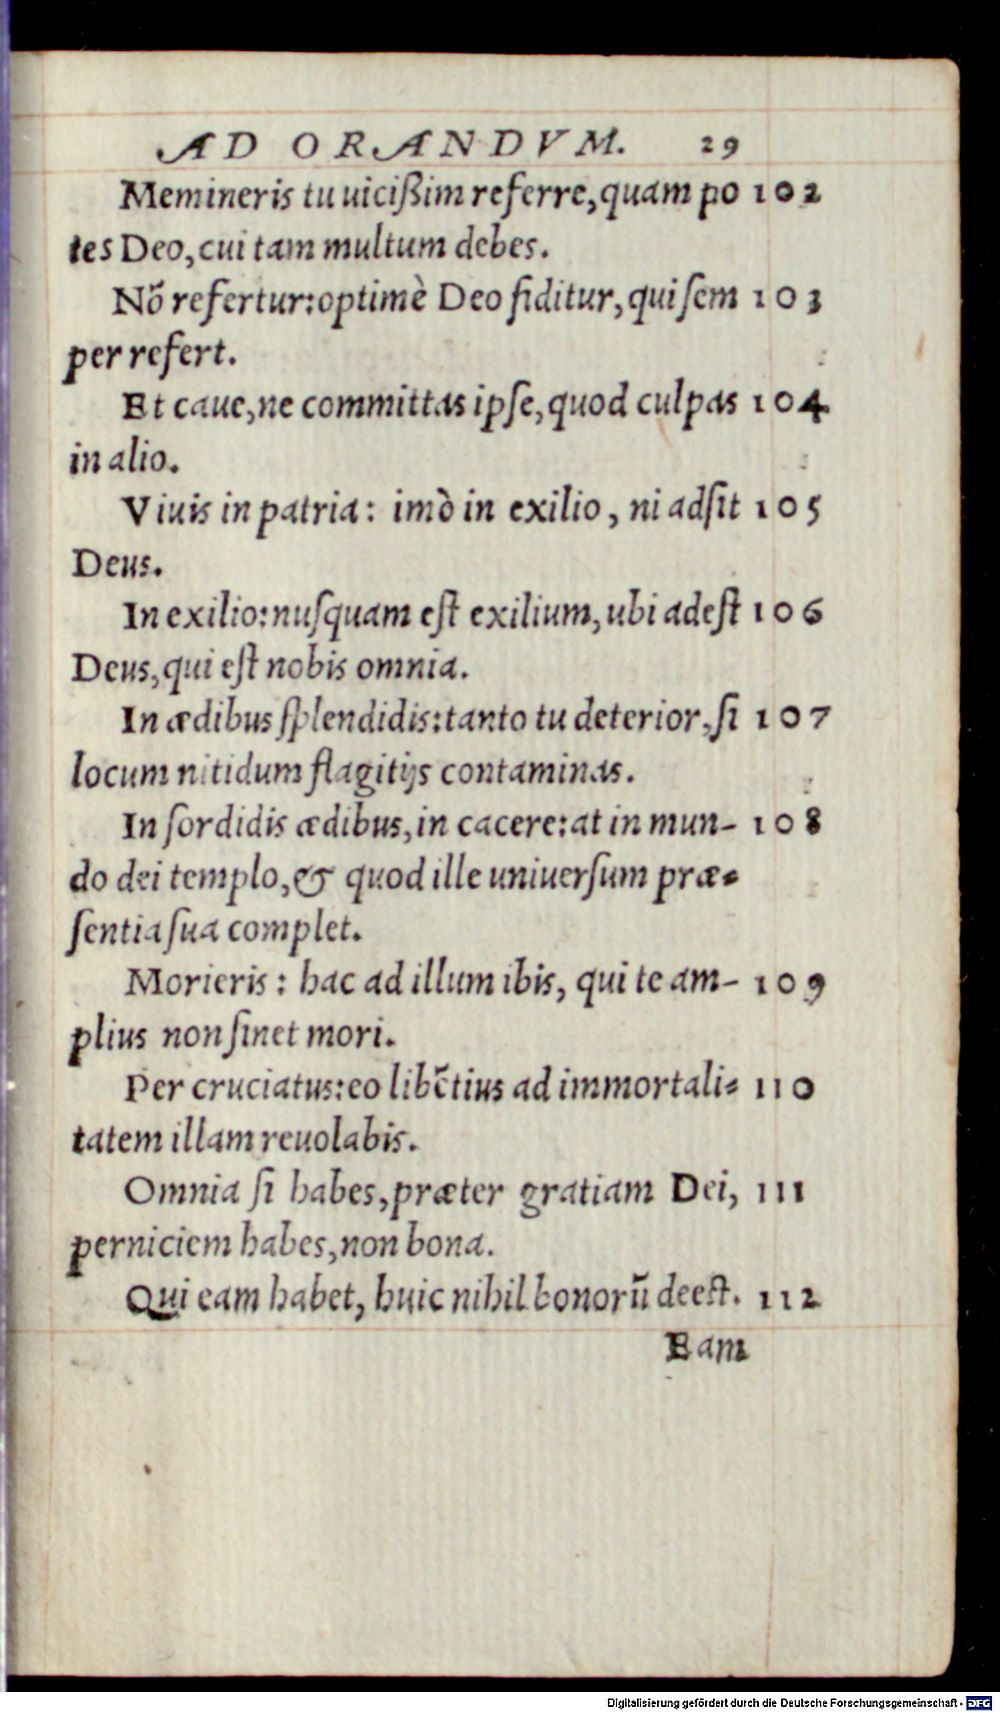 AD ORANDVM. 29
Memineris tu uicißim referre, quam po 102
tes Deo, cui tam multum debes.
Nõ refertur: optimè Deo fiditur, qui ſem 103
per refert.
Et caue, ne committas ipſe, quod culpas 104
in alio.
Viuis in patria: imò in exilio, ni adſit 105
Deus.
In exilio: nuſquam eſt exilium, ubi adeſt 106
Deus, qui eſt nobis omnia.
In ædibus ſplendidis: tanto tu deterior, ſi 107
locum nitidum flagitijs contaminas.
In ſordidis ædibus, in cacere: at in mun- 108
do dei templo, & quod ille uniuerſum præ-
ſentia ſua complet.
Morieris: hac ad illum ibis, qui te am- 109
plius non ſinet mori.
Per cruciatus: eo libẽtius ad immortali- 110
tatem illam reuolabis.
Omnia ſi habes, præter gratiam Dei, 111
perniciem habes, non bona.
Qui eam habet, huic nihil bonorũ deeſt. 112
Eam
Digitalisierung gefördert durch die Deutsche Forschungsgemeinschaft - DFG